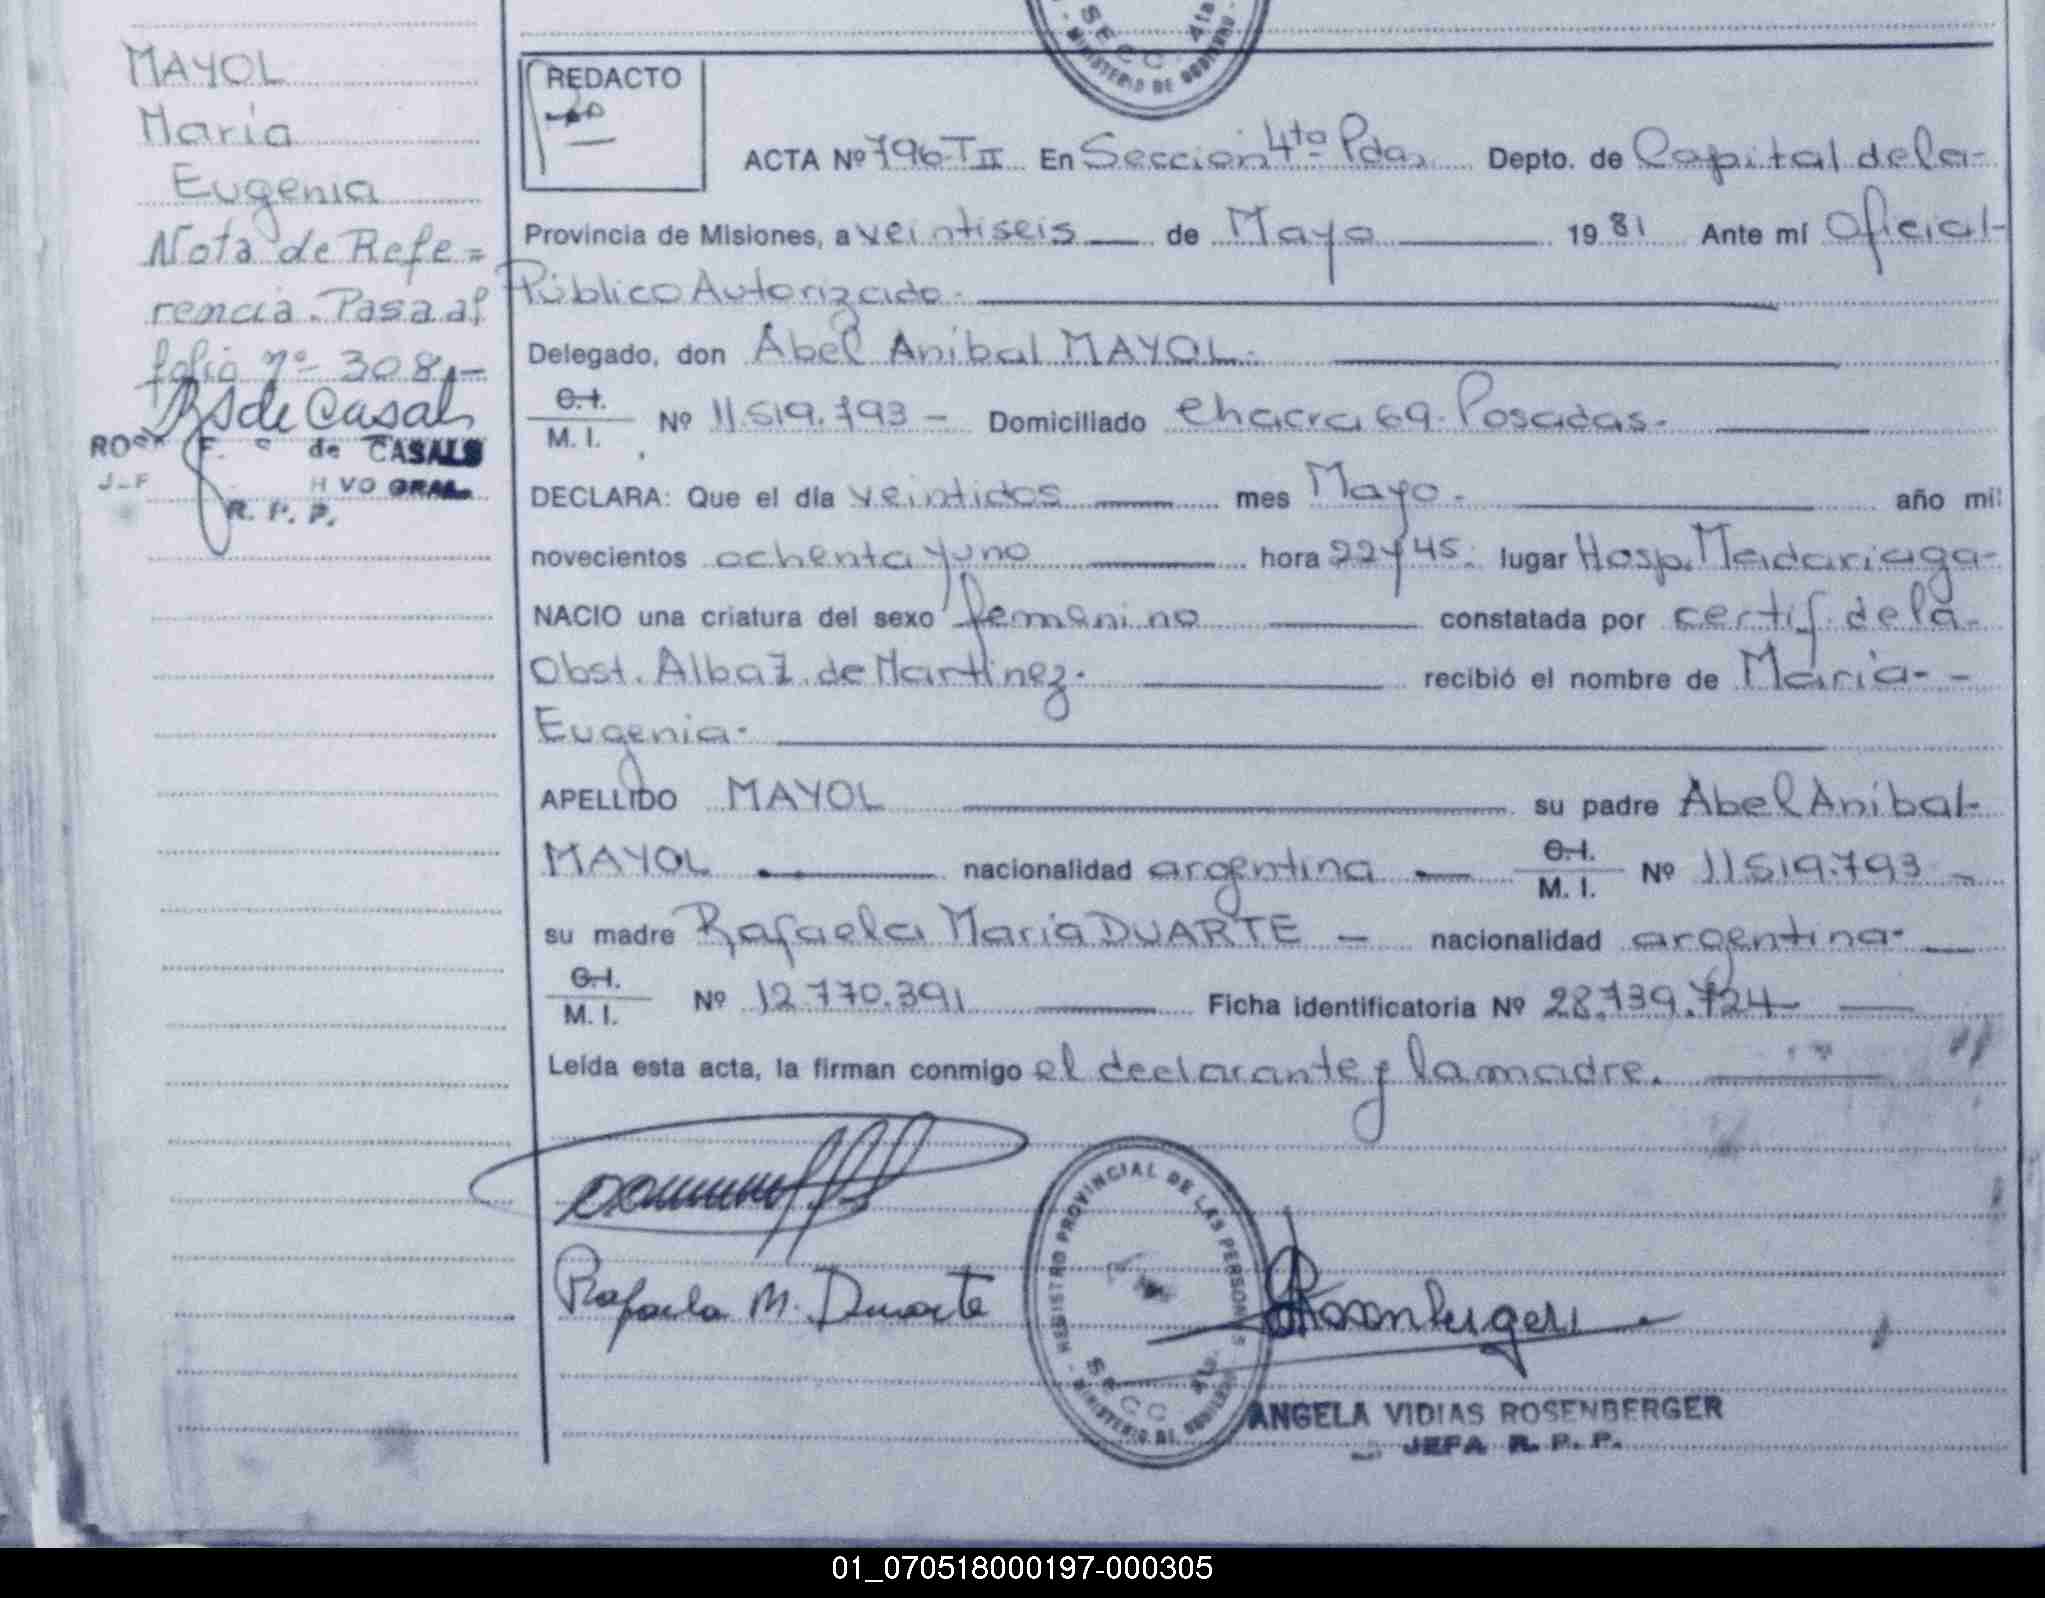 SECC 4ta
- MINISTERIO DE GOBIERNO -
MAYOL
María
Eugenia
Nota de Refe=
rencia. Pasa al
folio nº 308.-
Rsde Casals
de CASALS
VO GRAL.
R. P. P.
REDACTO
ACTA Nº 796-TII En Sección 4ta Pdas, Depto. de Capital de la-
Provincia de Misiones, a veintiseis de Mayo 1981 Ante mí Oficial-
Público Autorizado-
Delegado, don Abel Anibal MAYOL-
C.I.
M. I. Nº 11.519.793 - Domiciliado Chacra 69- Posadas-
DECLARA: Que el día veintidos mes Mayo- año mil
novecientos ochenta y uno hora 22 y 45. lugar Hosp. Madariaga-
NACIO una criatura del sexo femenino constatada por certif. de la-
Obst. Alba Z. de Martínez- recibió el nombre de María- -
Eugenia-
APELLIDO MAYOL su padre Abel Anibal-
MAYOL nacionalidad argentina C.I.
M. I. Nº 11.519.793 -
su madre Rafaela María DUARTE - nacionalidad argentina-
C.I.
M. I. Nº 12.770.391 Ficha identificatoria Nº 28.739.724-
Leída esta acta, la firman conmigo el declarante y la madre.
Rafaela M. Duarte
- REGISTRO PROVINCIAL DE LAS PERSONAS
SECC 4ta.
- MINISTERIO DE GOBIERNO
Rosenberger
ANGELA VIDIAS ROSENBERGER
JEFA R. P. P.
01_070518000197-000305